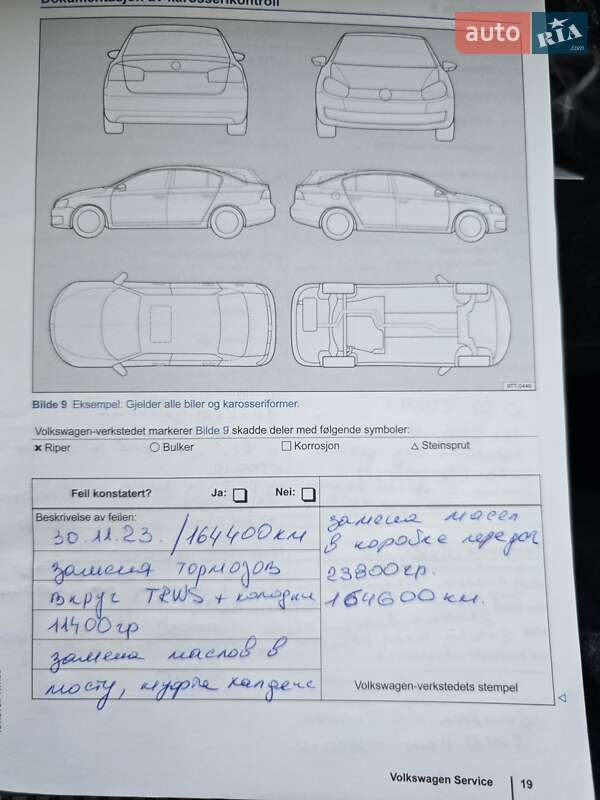 Dokumentasjon av karosserikontroll
auto RIA .com
9T7-0446
Bilde 9 Eksempel: Gjelder alle biler og karosseriformer.
Volkswagen-verkstedet markerer Bilde 9 skadde deler med følgende symboler:
✖ Riper ○ Bulker □ Korrosjon △ Steinsprut
Feil konstatert? Ja: Nei:
Beskrivelse av feilen:
30.11.23. / 164400 км
замена тормозов
вкруг TRWS + колодки
11400 гр
замена маслов в
мосту, муфта халдекс
замена масел
в коробке передач
23800 гр.
164600 км.
Volkswagen-verkstedets stempel
Volkswagen Service 19